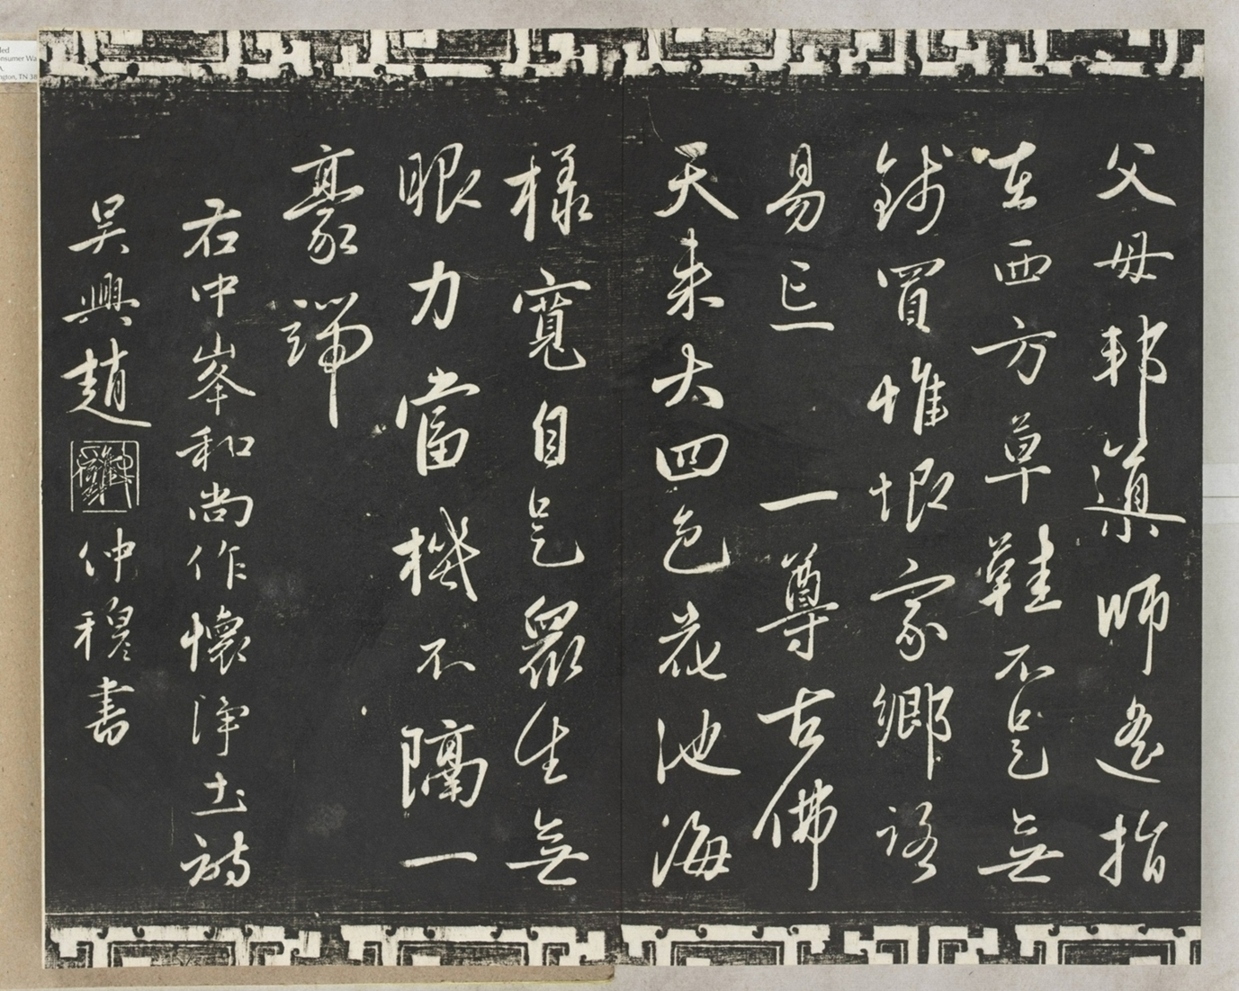 父母邦道師遙指
在西方草鞋不是無
錢買惟恨家鄉路
易忘 一尊古佛
天來大四色花池海
樣寬自是眾生無
眼力當機不隔一
豪端
右中峯和尚作懷淨土詩
吳興趙 仲穆書